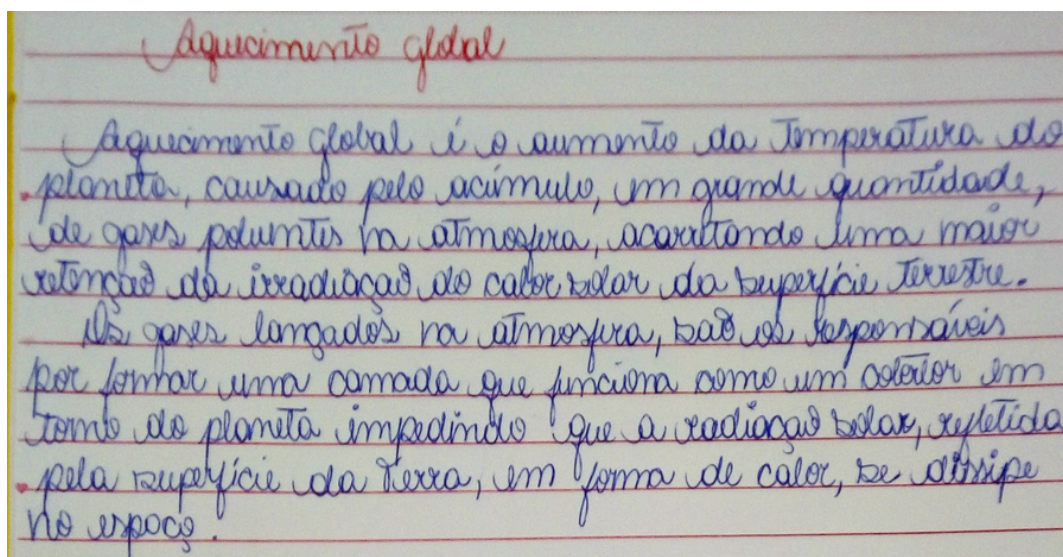 Aquecimento global
Aquecimento global é o aumento da temperatura do
planeta, causado pelo acúmulo, em grande quantidade,
de gases poluentes na atmosfera, acarretando uma maior
retenção da irradiação do calor solar da superfície terrestre.
Os gases lançados na atmosfera, são os responsáveis
por formar uma camada que funciona como um coletor em
torno do planeta impedindo que a radiação solar, refletida
pela superfície da Terra, em forma de calor, se dissipe
no espaço.